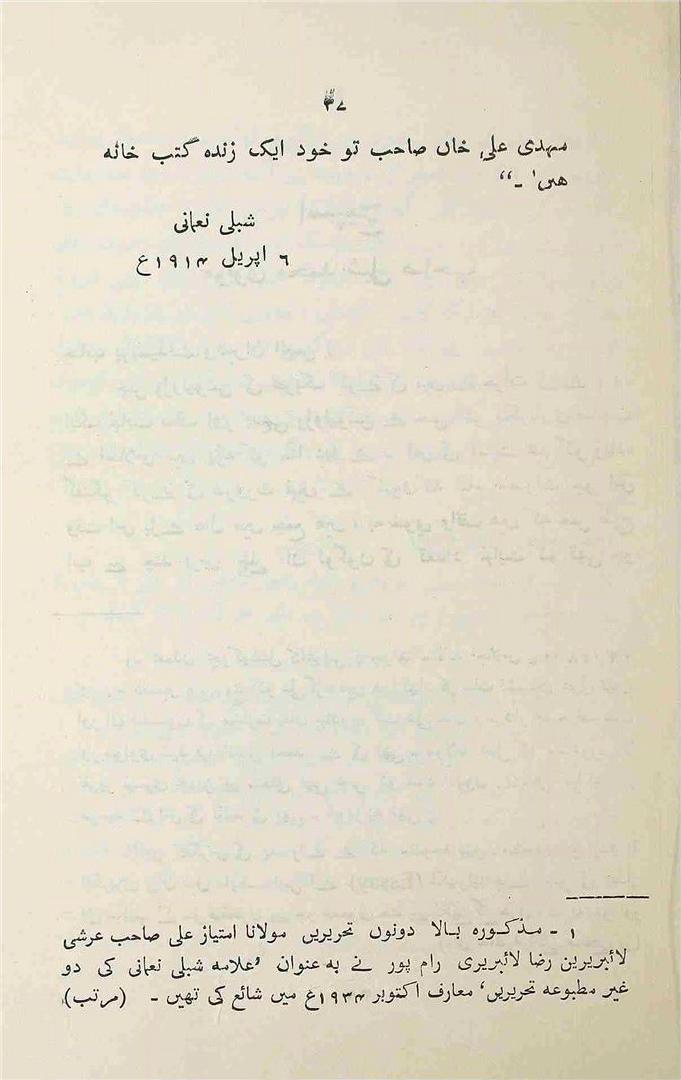 ۳۷
مہدی علی خاں صاحب تو خود ایک زندہ کتب خانہ
ہیں۱ ۔“
شبلی نعمانی
۶ اپریل ۱۹۱۴ع
۱ ۔ مذکورہ بالا دونوں تحریریں مولانا امتیاز علی صاحب عرشی
لائبریرین رضا لائبریری رام پور نے بہ عنوان ’علامہ شبلی نعمانی کی دو
غیر مطبوعہ تحریریں‘ معارف اکتوبر ۱۹۳۴ع میں شائع کی تھیں ۔ (مرتب)